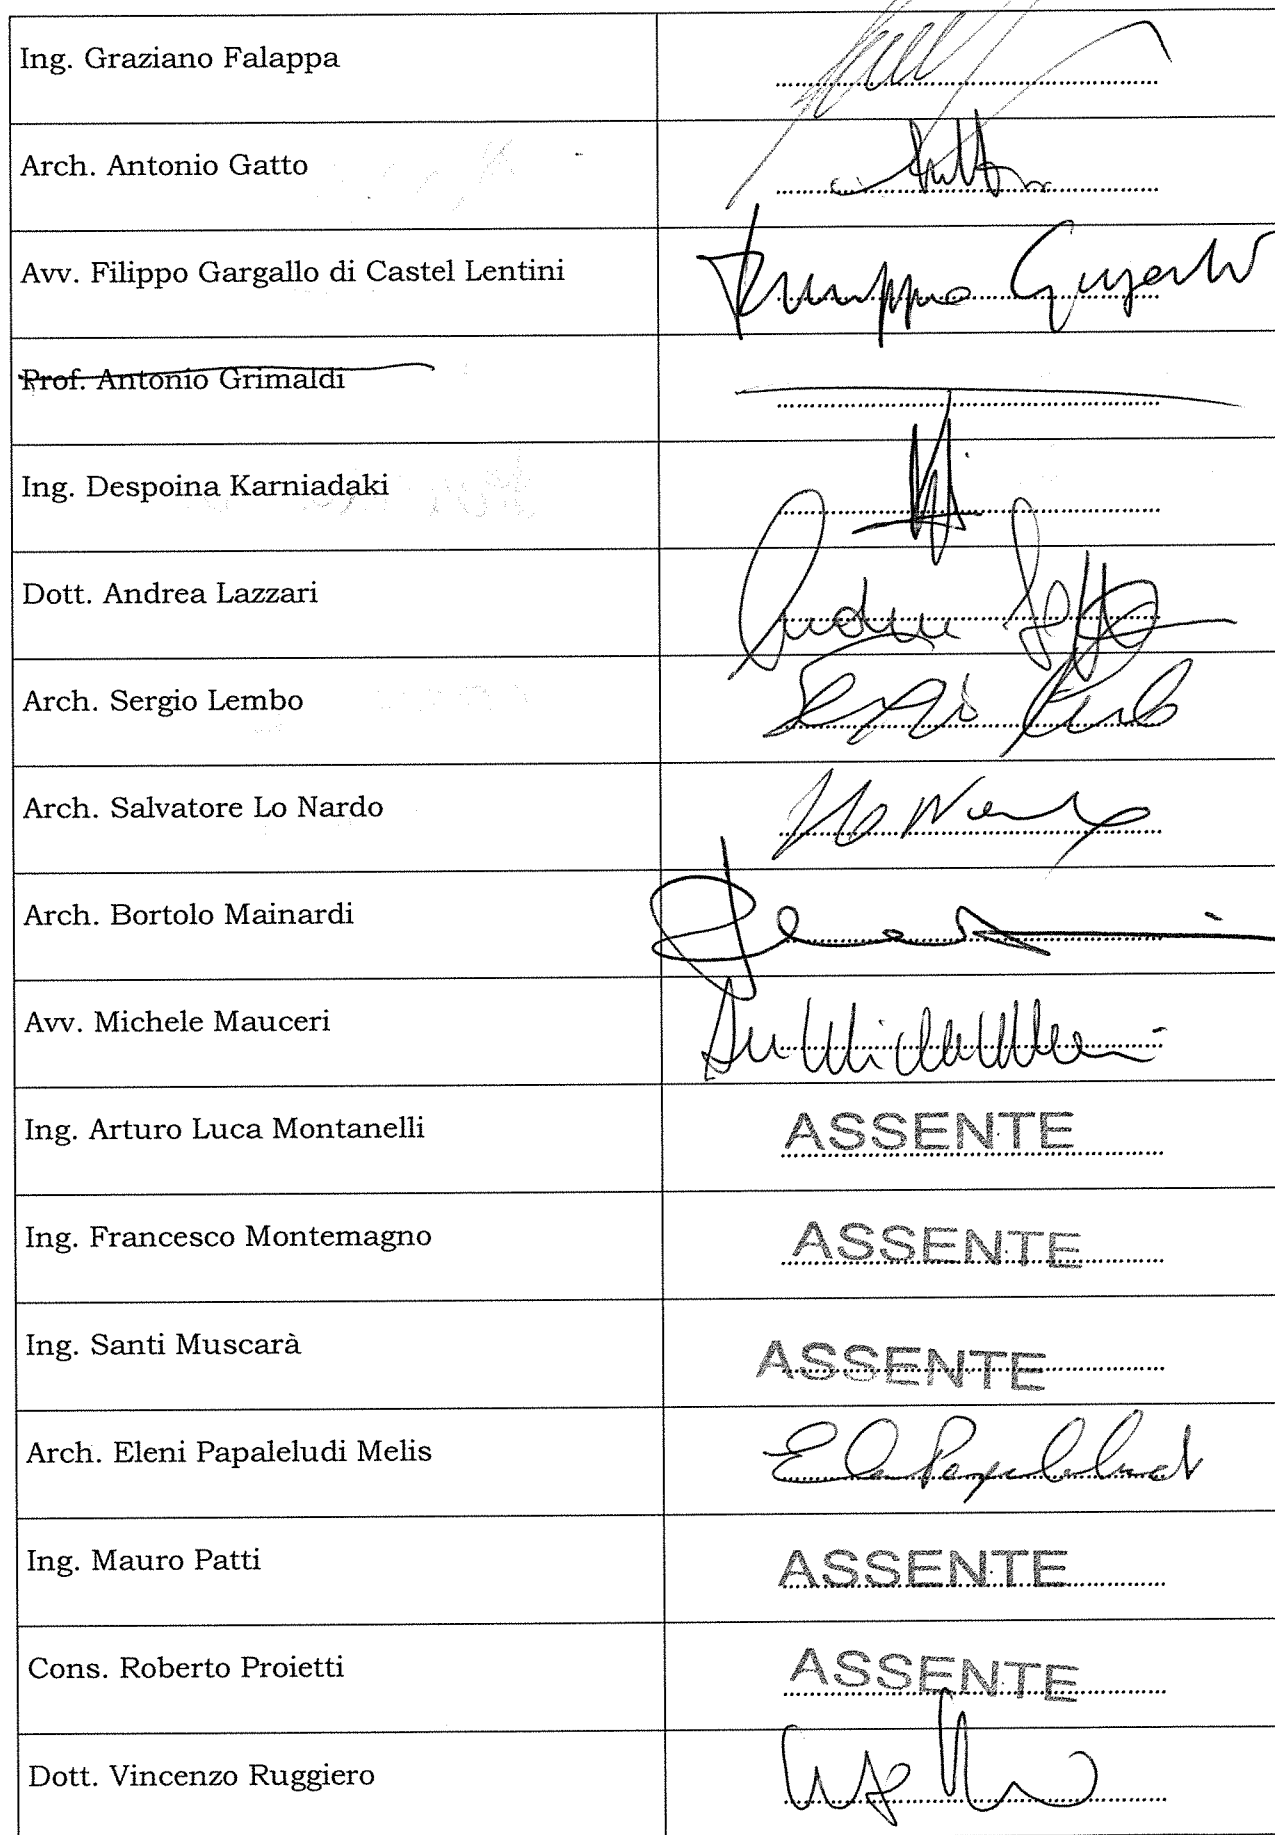 Ing. Graziano Falappa
Arch. Antonio Gatto
Avv. Filippo Gargallo di Castel Lentini
Filippo Gargallo
Prof. Antonio Grimaldi
Ing. Despoina Karniadaki
Dott. Andrea Lazzari
Andrea
Arch. Sergio Lembo
Sergio Lembo
Arch. Salvatore Lo Nardo
Lo Nardo
Arch. Bortolo Mainardi
Avv. Michele Mauceri
Ing. Arturo Luca Montanelli
ASSENTE
Ing. Francesco Montemagno
ASSENTE
Ing. Santi Muscarà
ASSENTE
Arch. Eleni Papaleludi Melis
Ing. Mauro Patti
ASSENTE
Cons. Roberto Proietti
ASSENTE
Dott. Vincenzo Ruggiero